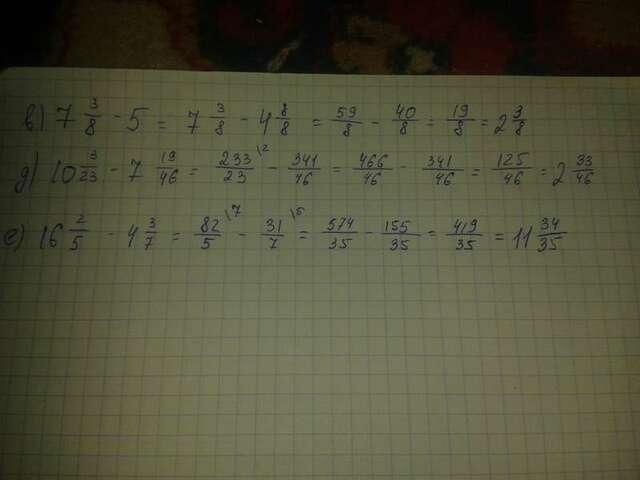 в) 7 3/8 - 5 = 7 3/8 - 4 8/8 = 59/8 - 40/8 = 19/8 = 2 3/8
д) 10 3/23 - 7 19/46 = 233/23 \2 - 341/46 = 466/46 - 341/46 = 125/46 = 2 33/46
е) 16 2/5 - 4 3/7 = 82/5 \7 - 31/7 \5 = 574/35 - 155/35 = 419/35 = 11 34/35